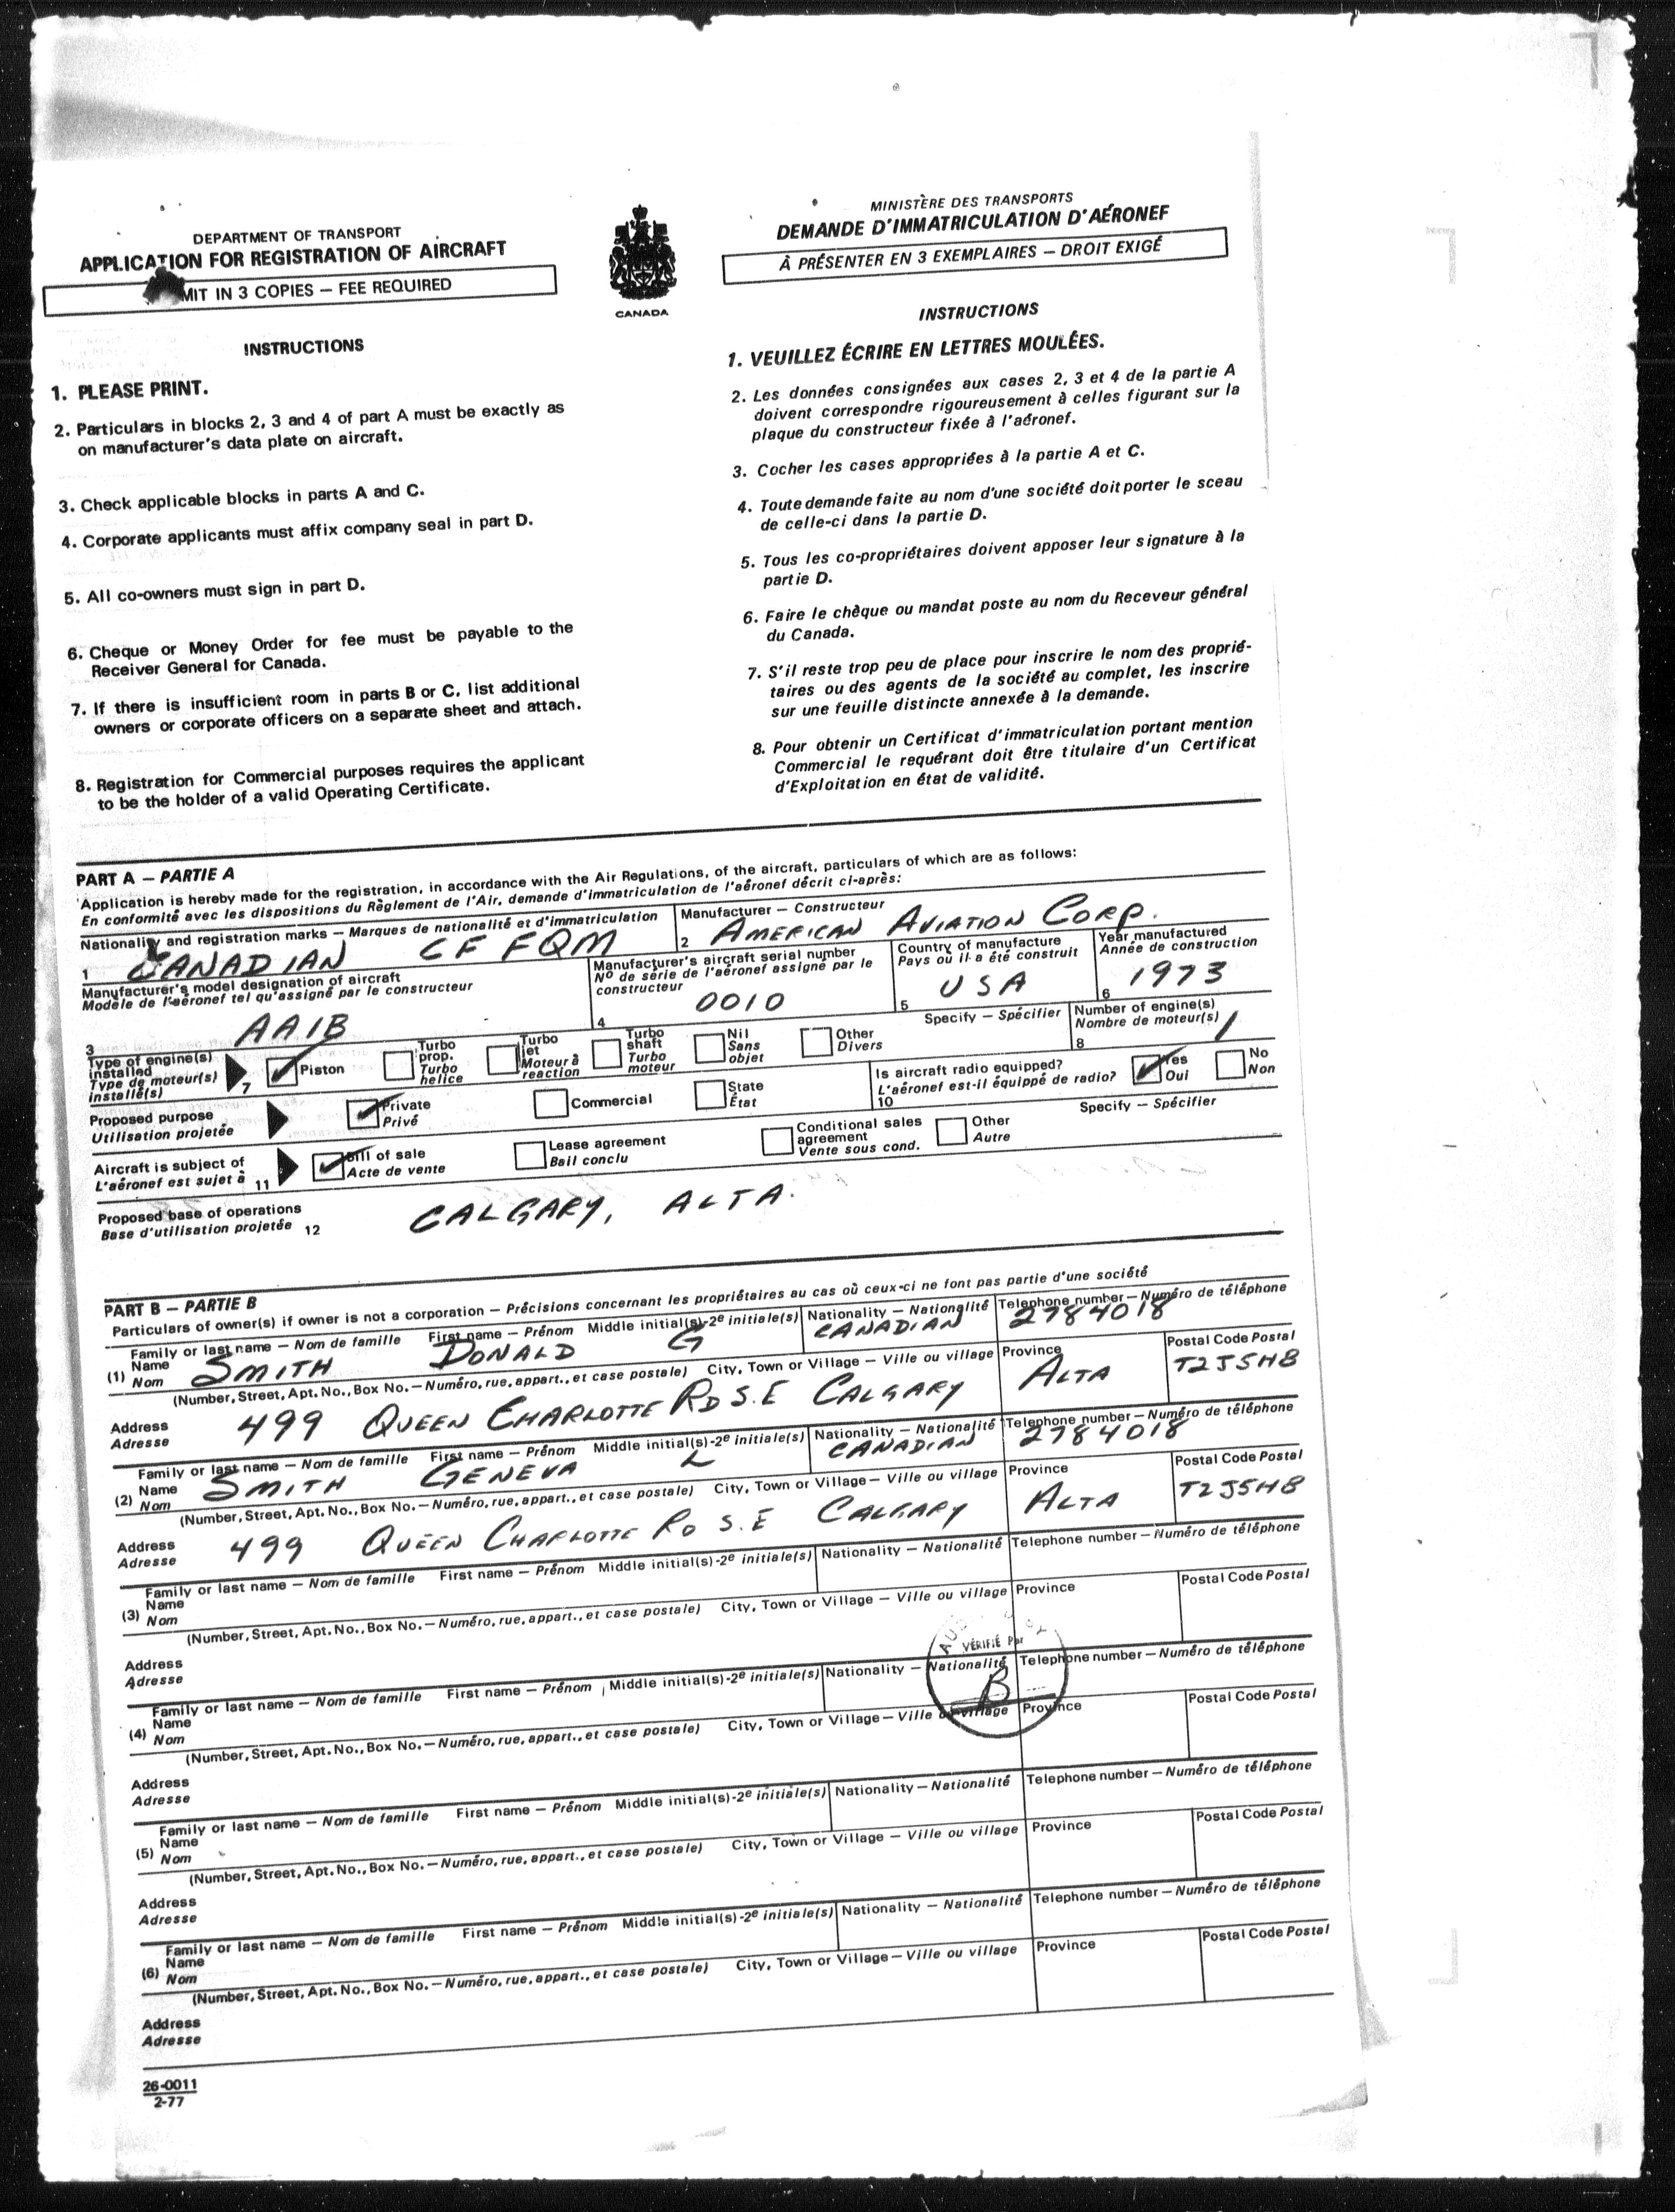 DEPARTMENT OF TRANSPORT
APPLICATION FOR REGISTRATION OF AIRCRAFT
MIT IN 3 COPIES — FEE REQUIRED
CANADA
MINISTÈRE DES TRANSPORTS
DEMANDE D'IMMATRICULATION D'AÉRONEF
À PRÉSENTER EN 3 EXEMPLAIRES — DROIT EXIGÉ
INSTRUCTIONS
1. PLEASE PRINT.
2. Particulars in blocks 2, 3 and 4 of part A must be exactly as
on manufacturer's data plate on aircraft.
3. Check applicable blocks in parts A and C.
4. Corporate applicants must affix company seal in part D.
5. All co-owners must sign in part D.
6. Cheque or Money Order for fee must be payable to the
Receiver General for Canada.
7. If there is insufficient room in parts B or C, list additional
owners or corporate officers on a separate sheet and attach.
8. Registration for Commercial purposes requires the applicant
to be the holder of a valid Operating Certificate.
INSTRUCTIONS
1. VEUILLEZ ÉCRIRE EN LETTRES MOULÉES.
2. Les données consignées aux cases 2, 3 et 4 de la partie A
doivent correspondre rigoureusement à celles figurant sur la
plaque du constructeur fixée à l'aéronef.
3. Cocher les cases appropriées à la partie A et C.
4. Toute demande faite au nom d'une société doit porter le sceau
de celle-ci dans la partie D.
5. Tous les co-propriétaires doivent apposer leur signature à la
partie D.
6. Faire le chèque ou mandat poste au nom du Receveur général
du Canada.
7. S'il reste trop peu de place pour inscrire le nom des proprié-
taires ou des agents de la société au complet, les inscrire
sur une feuille distincte annexée à la demande.
8. Pour obtenir un Certificat d'immatriculation portant mention
Commercial le requérant doit être titulaire d'un Certificat
d'Exploitation en état de validité.
PART A — PARTIE A
Application is hereby made for the registration, in accordance with the Air Regulations, of the aircraft, particulars of which are as follows:
En conformité avec les dispositions du Règlement de l'Air, demande d'immatriculation de l'aéronef décrit ci-après:
Nationality and registration marks — Marques de nationalité et d'immatriculation
1 CANADIAN CF FQM
Manufacturer — Constructeur
2 AMERICAN AVIATION CORP.
Manufacturer's model designation of aircraft
Modèle de l'aéronef tel qu'assigné par le constructeur
3 AA1B
Manufacturer's aircraft serial number
Nº de série de l'aéronef assigné par le
constructeur
4 0010
Country of manufacture
Pays où il a été construit
5 USA
Year manufactured
Année de construction
6 1973
Type of engine(s)
installed
Type de moteur(s)
installé(s)
7
Piston
Turbo
prop.
Turbo
hélice
Turbo
jet
Moteur à
réaction
Turbo
shaft
Turbo
moteur
Nil
Sans
objet
Other
Divers
Specify — Spécifier
Number of engine(s)
Nombre de moteur(s)
8 1
Proposed purpose
Utilisation projetée
Private
Privé
Commercial
State
État
Is aircraft radio equipped?
L'aéronef est-il équippé de radio?
10
Yes
Oui
No
Non
Aircraft is subject of
L'aéronef est sujet à 11
Bill of sale
Acte de vente
Lease agreement
Bail conclu
Conditional sales
agreement
Vente sous cond.
Other
Autre
Specify — Spécifier
Proposed base of operations
Base d'utilisation projetée 12
CALGARY, ALTA.
PART B — PARTIE B
Particulars of owner(s) if owner is not a corporation — Précisions concernant les propriétaires au cas où ceux-ci ne font pas partie d'une société
Family or last name — Nom de famille First name — Prénom Middle initial(s)-2e initiale(s) Nationality — Nationalité Telephone number — Numéro de téléphone
(1) Name Nom SMITH DONALD G CANADIAN 2784018
(Number, Street, Apt. No., Box No. — Numéro, rue, appart., et case postale) City, Town or Village — Ville ou village Province Postal Code Postal
Address Adresse 499 QUEEN CHARLOTTE RD S.E CALGARY ALTA T2J5H8
Family or last name — Nom de famille First name — Prénom Middle initial(s)-2e initiale(s) Nationality — Nationalité Telephone number — Numéro de téléphone
(2) Name Nom SMITH GENEVA L CANADIAN 2784018
(Number, Street, Apt. No., Box No. — Numéro, rue, appart., et case postale) City, Town or Village — Ville ou village Province Postal Code Postal
Address Adresse 499 QUEEN CHARLOTTE RD S.E CALGARY ALTA T2J5H8
Family or last name — Nom de famille First name — Prénom Middle initial(s)-2e initiale(s) Nationality — Nationalité Telephone number — Numéro de téléphone
(3) Name Nom
(Number, Street, Apt. No., Box No. — Numéro, rue, appart., et case postale) City, Town or Village — Ville ou village Province Postal Code Postal
VÉRIFIÉ Par
B
Address Adresse
Family or last name — Nom de famille First name — Prénom Middle initial(s)-2e initiale(s) Nationality — Nationalité Telephone number — Numéro de téléphone
(4) Name Nom
(Number, Street, Apt. No., Box No. — Numéro, rue, appart., et case postale) City, Town or Village — Ville ou village Province Postal Code Postal
Address Adresse
Family or last name — Nom de famille First name — Prénom Middle initial(s)-2e initiale(s) Nationality — Nationalité Telephone number — Numéro de téléphone
(5) Name Nom
(Number, Street, Apt. No., Box No. — Numéro, rue, appart., et case postale) City, Town or Village — Ville ou village Province Postal Code Postal
Address Adresse
Family or last name — Nom de famille First name — Prénom Middle initial(s)-2e initiale(s) Nationality — Nationalité Telephone number — Numéro de téléphone
(6) Name Nom
(Number, Street, Apt. No., Box No. — Numéro, rue, appart., et case postale) City, Town or Village — Ville ou village Province Postal Code Postal
Address Adresse
26-0011
2-77